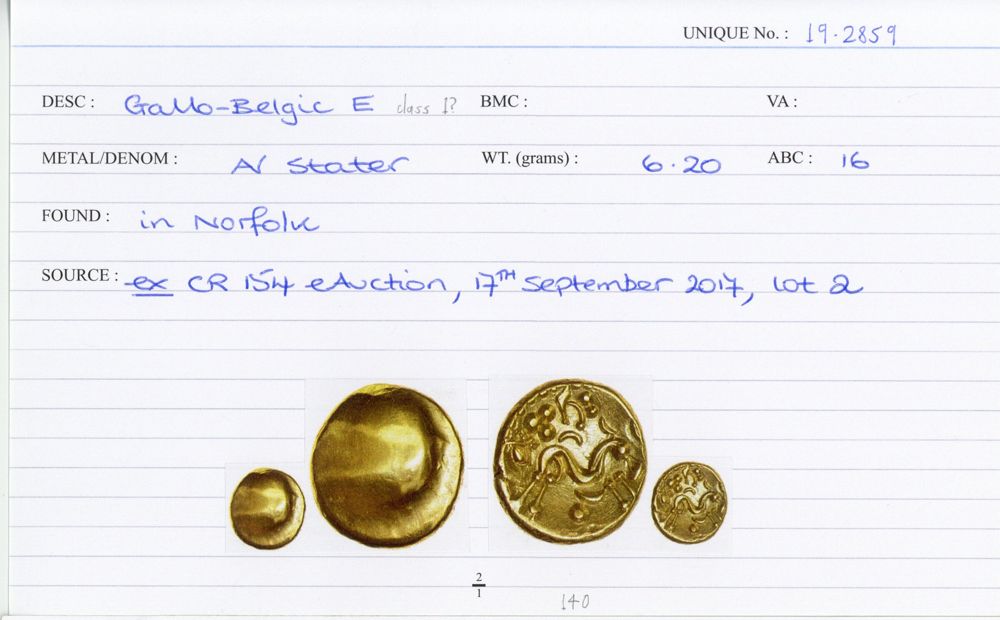 UNIQUE No. : 19·2859
DESC : Gallo-Belgic E class I? BMC : VA :
METAL/DENOM : AV Stater WT. (grams) : 6·20 ABC : 16
FOUND : in Norfolk
SOURCE : ex CR 154 eAuction, 17TH September 2017, lot 2
2
1
140